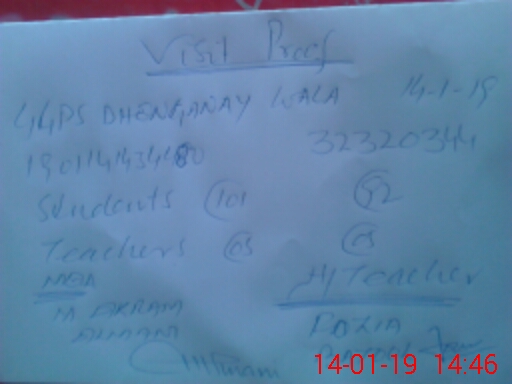 Visit Proof
GGPS DHENGANAY WALA 14-1-19
32320344
Students 101 92
Teachers 03 03
MEA H/Teacher
M AKRAM
14-01-19 14:46